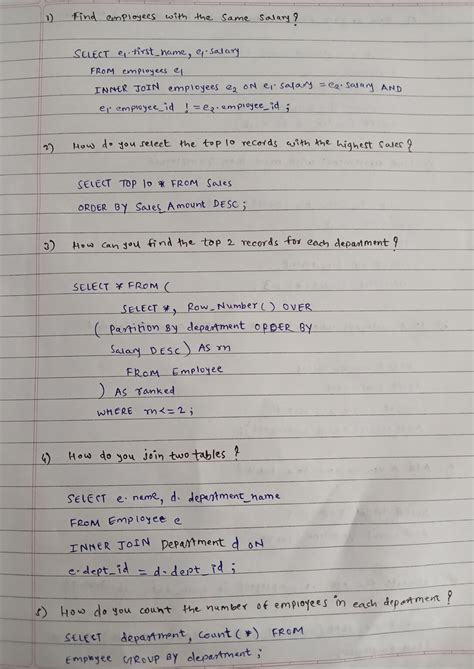 1) Find employees with the same salary?
SELECT e1.first_name, e1.salary
FROM employees e1
INNER JOIN employees e2 ON e1.salary = e2.salary AND
e1.employee_id != e2.employee_id;
2) How do you select the top 10 records with the highest sales?
SELECT TOP 10 * FROM Sales
ORDER BY Sales_Amount DESC;
3) How can you find the top 2 records for each department?
SELECT * FROM (
SELECT *, Row_Number() OVER
( Partition By department ORDER BY
Salary DESC) AS rn
FROM Employee
) AS ranked
WHERE rn<=2;
4) How do you join two tables?
SELECT e.name, d.department_name
FROM Employee e
INNER JOIN Department d ON
e.dept_id = d.dept_id;
5) How do you count the number of employees in each department?
SELECT department, count(*) FROM
Employee GROUP By department;